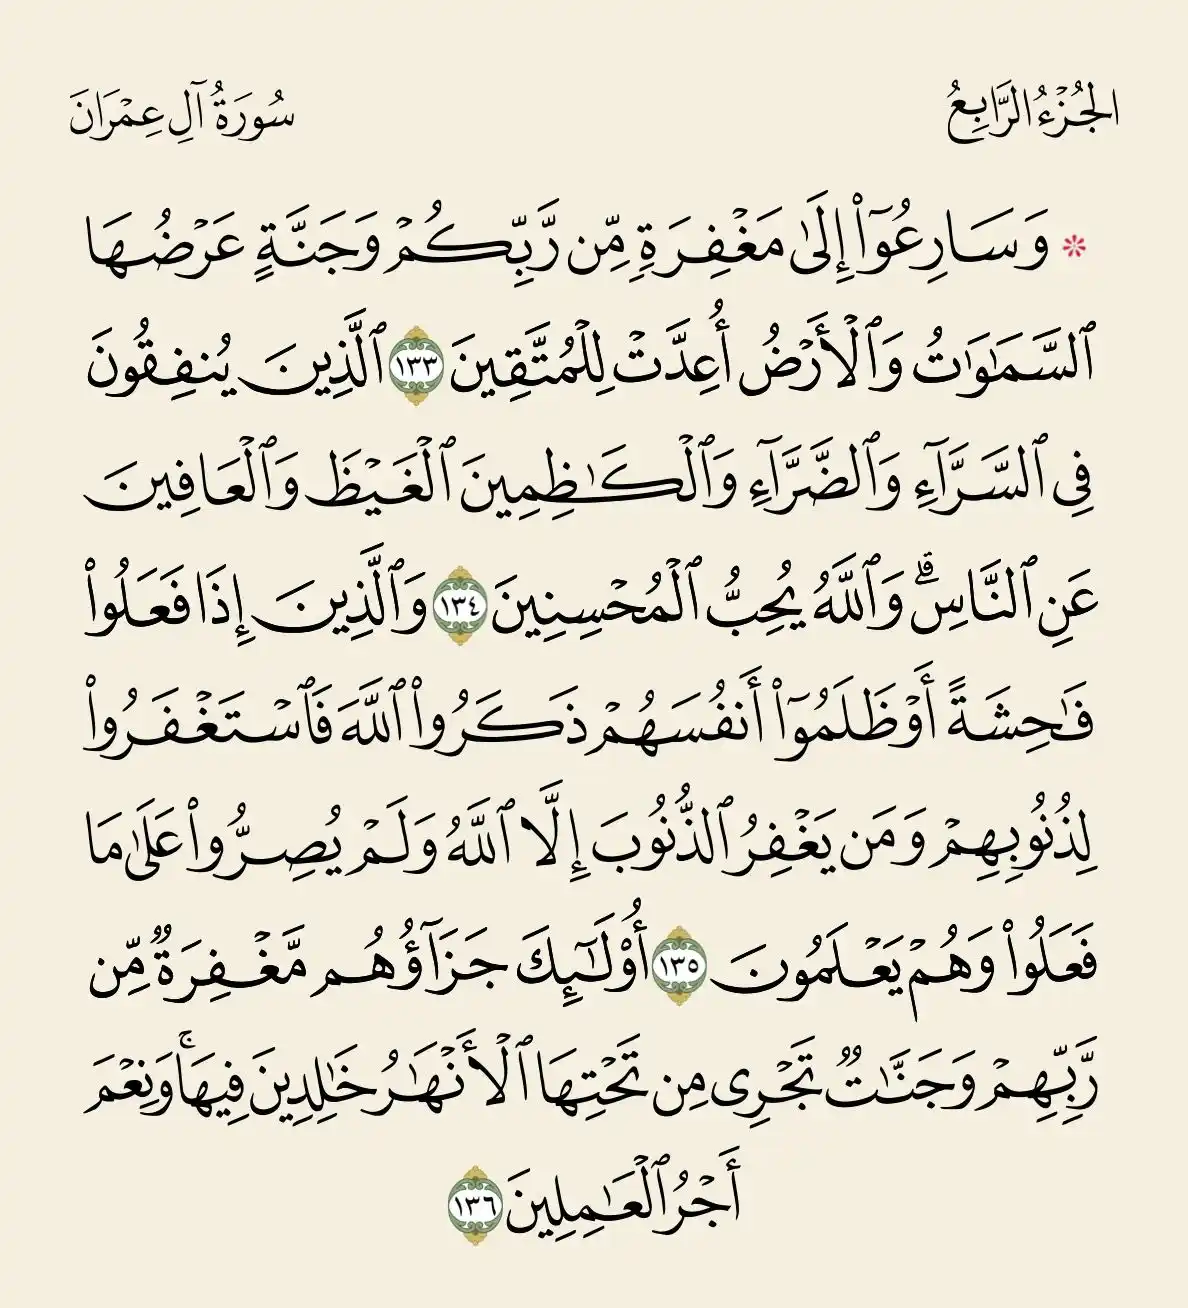 الجُزْءُ الرَّابِعُ
سُورَةُ آلِ عِمْرَانَ
* وَسَارِعُوٓا۟ إِلَىٰ مَغْفِرَةٍ مِّن رَّبِّكُمْ وَجَنَّةٍ عَرْضُهَا
ٱلسَّمَـٰوَٰتُ وَٱلْأَرْضُ أُعِدَّتْ لِلْمُتَّقِينَ ١٣٣ ٱلَّذِينَ يُنفِقُونَ
فِى ٱلسَّرَّآءِ وَٱلضَّرَّآءِ وَٱلْكَـٰظِمِينَ ٱلْغَيْظَ وَٱلْعَافِينَ
عَنِ ٱلنَّاسِ ۗ وَٱللَّهُ يُحِبُّ ٱلْمُحْسِنِينَ ١٣٤ وَٱلَّذِينَ إِذَا فَعَلُوا۟
فَـٰحِشَةً أَوْ ظَلَمُوٓا۟ أَنفُسَهُمْ ذَكَرُوا۟ ٱللَّهَ فَٱسْتَغْفَرُوا۟
لِذُنُوبِهِمْ وَمَن يَغْفِرُ ٱلذُّنُوبَ إِلَّا ٱللَّهُ وَلَمْ يُصِرُّوا۟ عَلَىٰ مَا
فَعَلُوا۟ وَهُمْ يَعْلَمُونَ ١٣٥ أُو۟لَـٰٓئِكَ جَزَآؤُهُم مَّغْفِرَةٌ مِّن
رَّبِّهِمْ وَجَنَّـٰتٌ تَجْرِى مِن تَحْتِهَا ٱلْأَنْهَـٰرُ خَـٰلِدِينَ فِيهَا ۚ وَنِعْمَ
أَجْرُ ٱلْعَـٰمِلِينَ ١٣٦